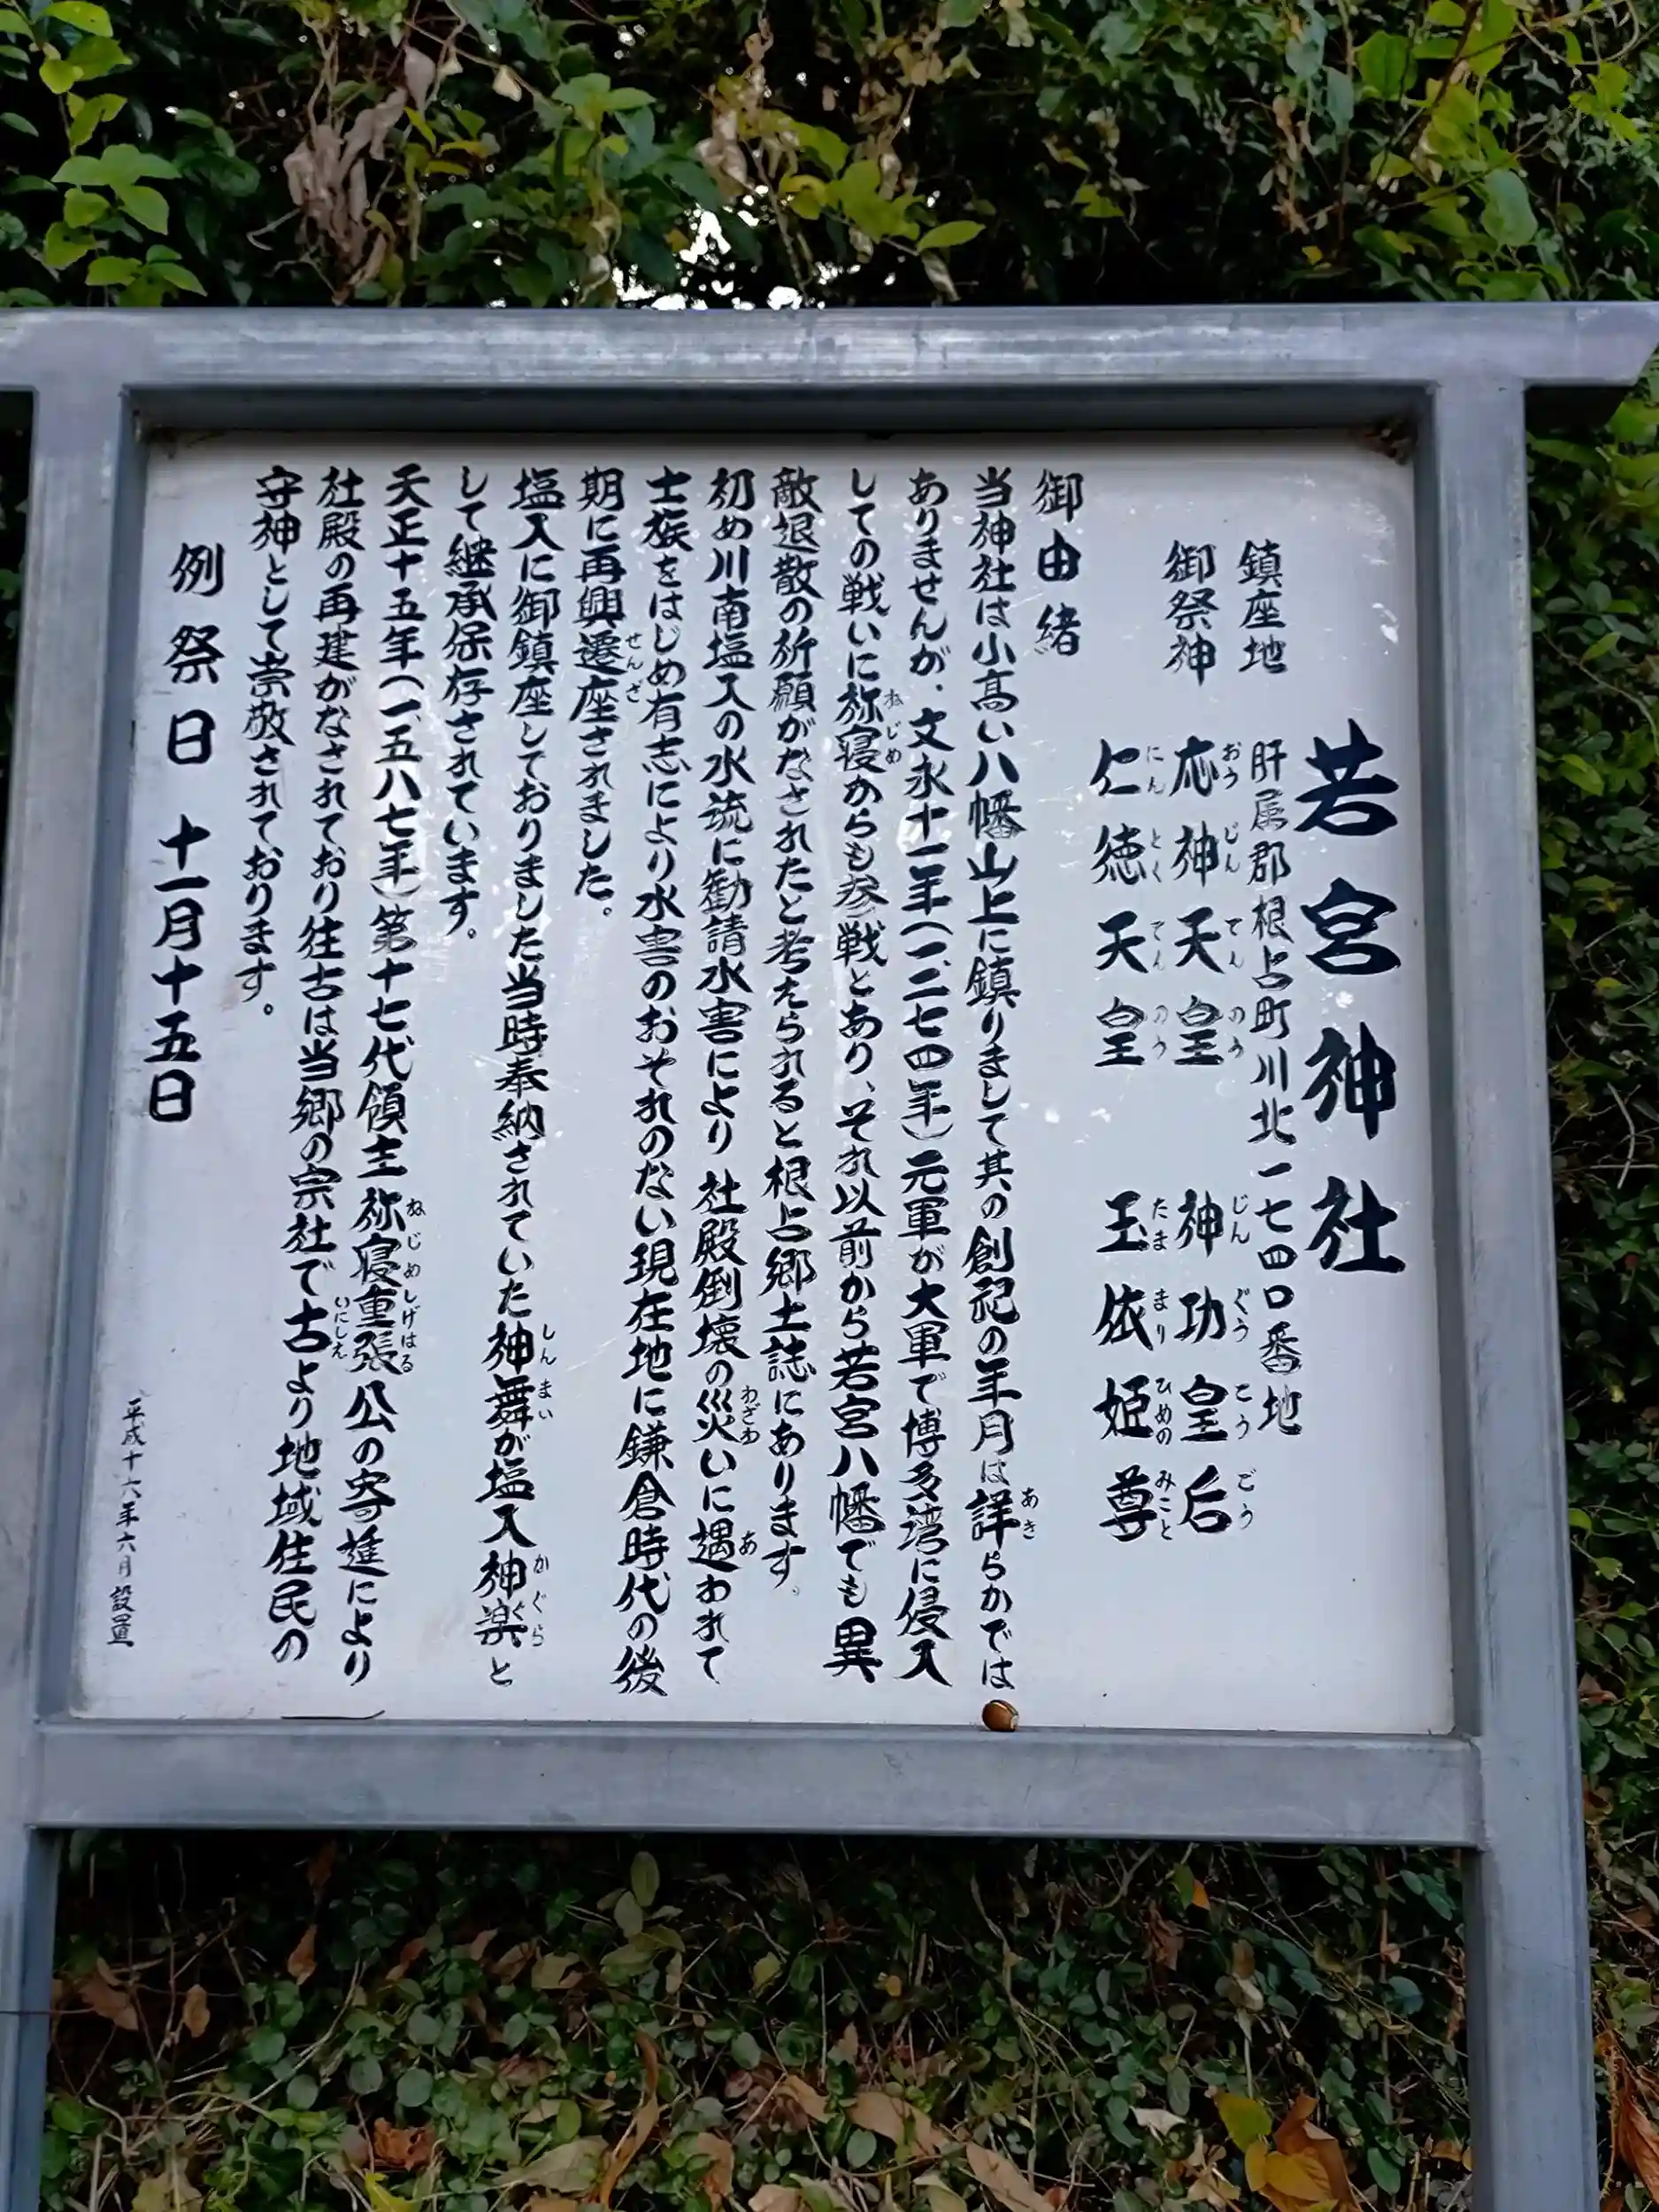 若宮神社
鎮座地 肝属郡根占町川北一七四〇番地
御祭神 応神天皇 神功皇后
おうじんてんのう じんぐうこうごう
仁徳天皇 玉依姫尊
にんとくてんのう たまよりひめのみこと
御由緒
当神社は小高い八幡山上に鎮りまして其の創祀の年月は詳らかでは
あき
ありませんが、文永十一年(一、二七四年)元軍が大軍で博多湾に侵入
しての戦いに祢寝からも参戦とあり、それ以前から若宮八幡でも異
ねじめ
敵退散の祈願がなされたと考えられると根占郷土誌にあります。
初め川南塩入の水流に勧請水害により社殿倒壊の災いに遇われて
わざわ あ
士族をはじめ有志により水害のおそれのない現在地に鎌倉時代の後
期に再興遷座されました。
せんざ
塩入に御鎮座しておりました当時奉納されていた神舞が塩入神楽と
しんまい かぐら
して継承保存されています。
天正十五年(一、五八七年)第十七代領主祢寝重張公の寄進により
ねじめしげはる
社殿の再建がなされており往古は当郷の宗社で古より地域住民の
いにしえ
守神として崇敬されております。
例祭日 十一月十五日
平成十六年六月設置